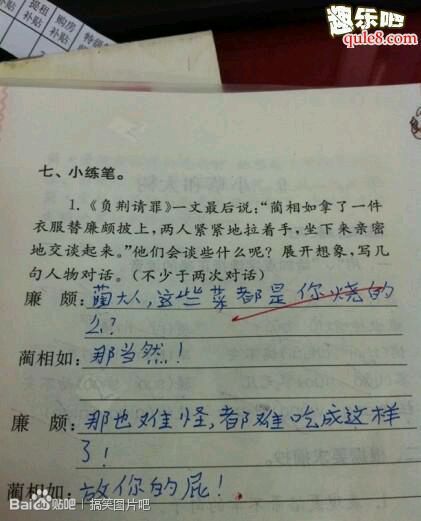 提租
补贴
购房
补贴
趣乐吧
qule8.com
七、小练笔。
1.《负荆请罪》一文最后说:“蔺相如拿了一件
衣服替廉颇披上,两人紧紧地拉着手,坐下来亲密
地交谈起来。”他们会谈些什么呢?展开想象,写几
句人物对话。(不少于两次对话)
廉 颇:蔺大人,这些菜都是你烧的
么?
蔺相如:那当然!
廉 颇:那也难怪,都难吃成这样
了!
蔺相如:放你的屁!
Bai度贴吧 | 搞笑图片吧